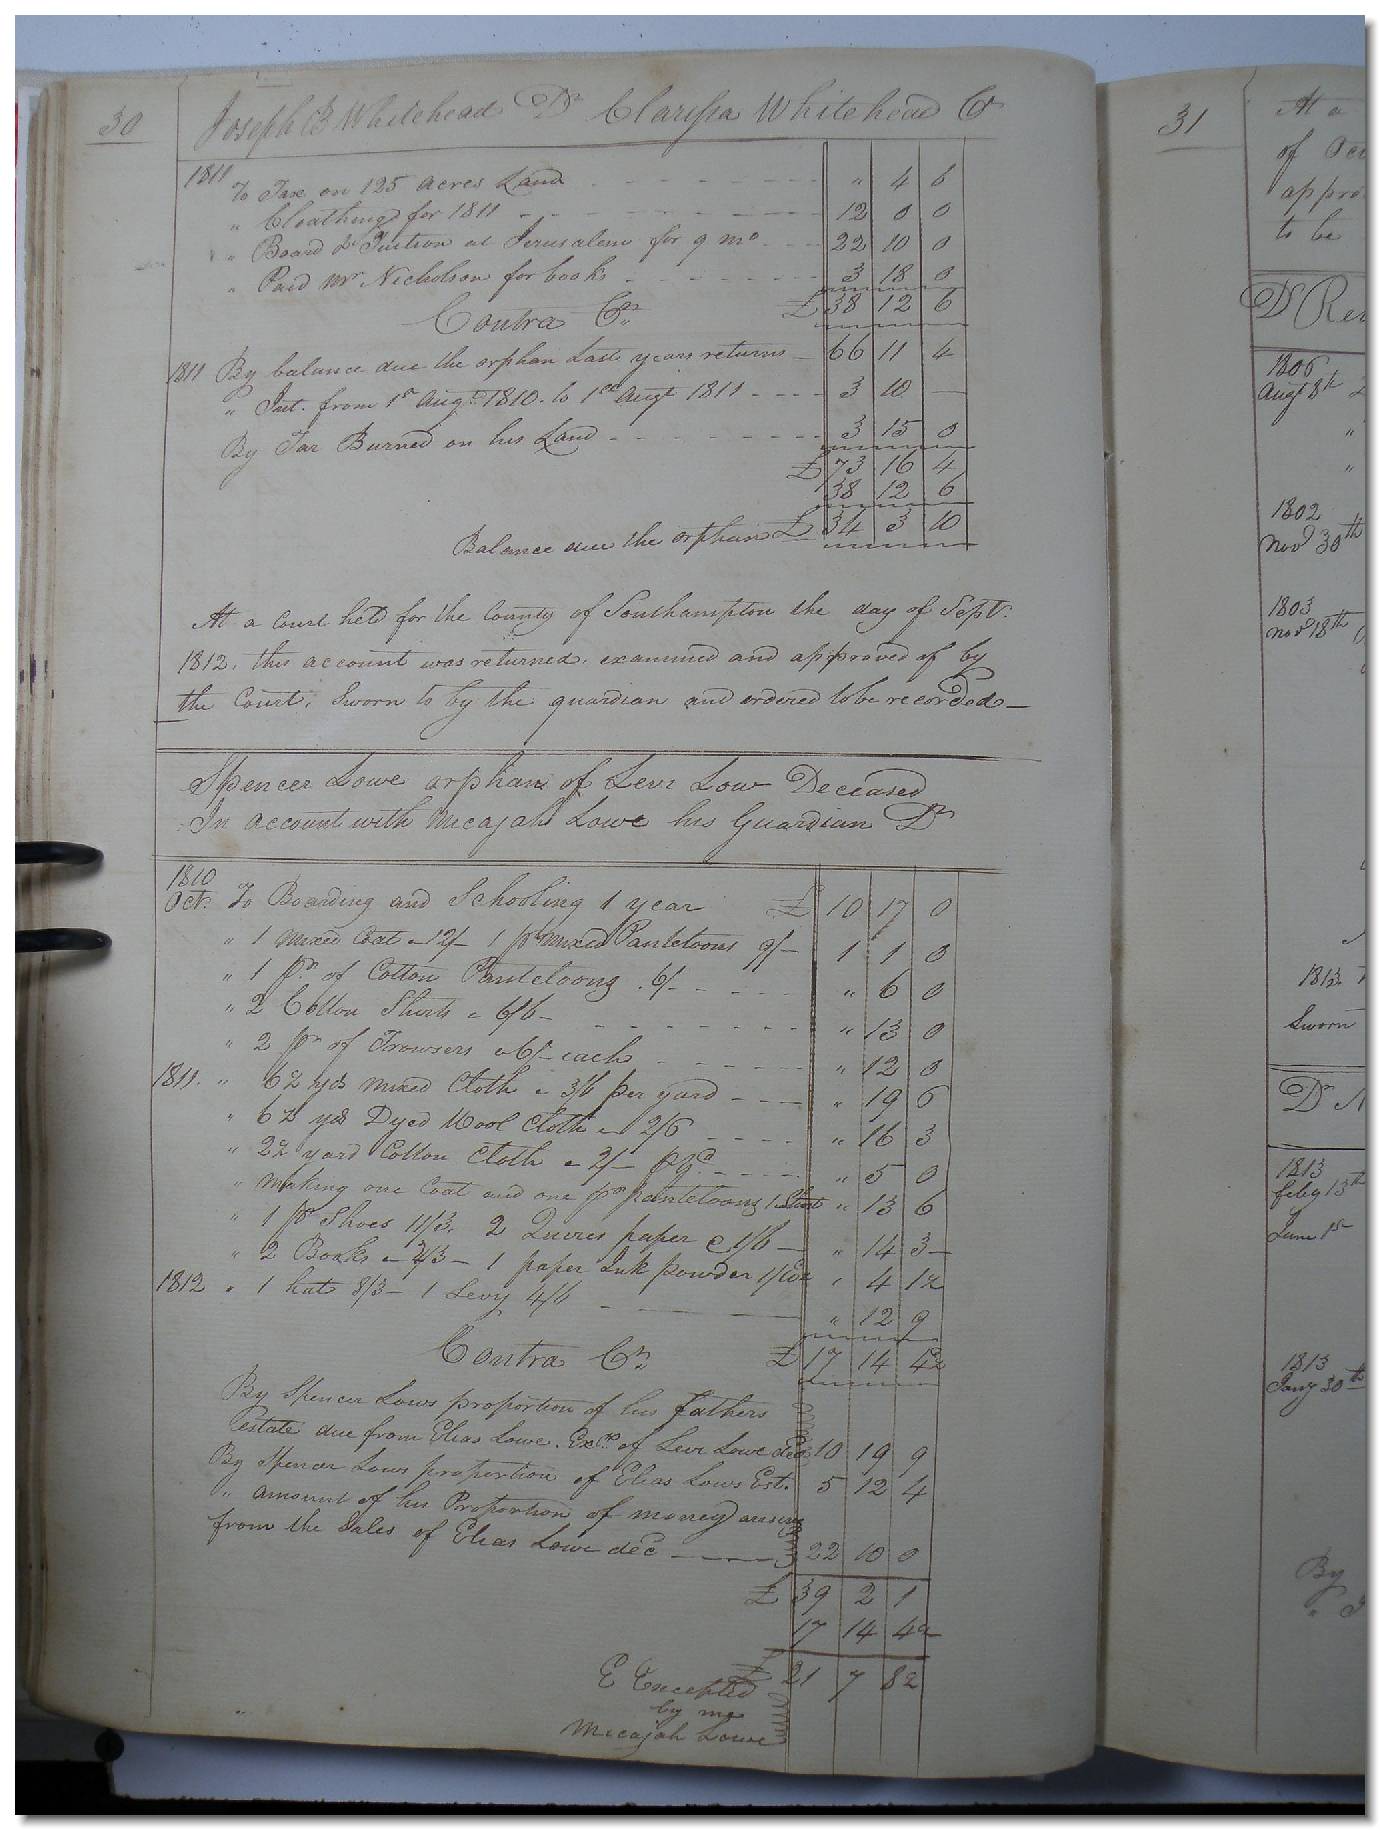 30
Joseph B Whitehead Dr Clarissa Whitehead Gr
1811 To Tax on 125 acres Land " 4 6
" Cloathing for 1811 12 0 0
" Board & Tuition at Jerusalem for 9 mo 22 10 0
" Paid Mr Nicholson for books 3 18 0
Contra Cr. £ 38 12 6
1811 By balance due the orphan Last years returns 66 11 4
" Int. from 1st Augt 1810 to 1st Augt 1811 3 10 —
By Tar Burned on his Land 3 15 0
£ 73 16 4
38 12 6
Balance due the orphan £ 34 3 10
At a Court held for the County of Southampton the day of Sept.
1812. this account was returned, examined and approved of by
the Court, Sworn to by the guardian and ordered to be recorded —
Spencer Lowe orphan of Levi Low Deceased
In account with Micajah Lowe his Guardian Dr
1810
Oct. To Boarding and Schooling 1 year £ 10 17 0
" 1 mixed Coat 12/– 1 pr mixed Panteloons 9/– 1 1 0
" 1 pr of Cotton Panteloons 6/– " 6 0
" 2 Cotton Shirts 6/6 – " 13 0
" 2 pr of Trowsers 6/– each " 12 0
1811. " 6½ yds mixed Cloth 3/6 per yard " 19 6
" 6½ yds Dyed Wool Cloth 2/6 " 16 3
" 2½ yard Cotton Cloth 2/– pr yd " 5 0
" making one Coat and one pr panteloons 1 Shirt " 13 6
" 1 pr Shoes 11/3. 2 Quires paper @ 1/6 – " 14 3 –
" 2 Books 2/3 – 1 paper Ink powder 1/ " 4 1½
1812 " 1 hat 8/3 – 1 Levy 4/6 " 12 9
Contra Cr. £ 17 14 4½
By Spencer Lows proportion of his fathers
estate due from Elias Lowe. Exr. of Levi Lowe decd 10 19 9
By Spencer Lows proportion of Elias Lows Est. 5 12 4
" amount of his Proportion of money arising
from the Sales of Elias Lowe decd 22 10 0
£ 39 2 1
17 14 4½
£ 21 7 8½
E Excepted
by me
Micajah Lowe
31
At a
of Oct
appro
to be
Dr
1806
Augt 8th
"
"
1802
Novr 30th
1803
Novr 18th
1813
Sworn
Dr
1813
feby 13th
June 1st
1813
Jany 30th
By
"